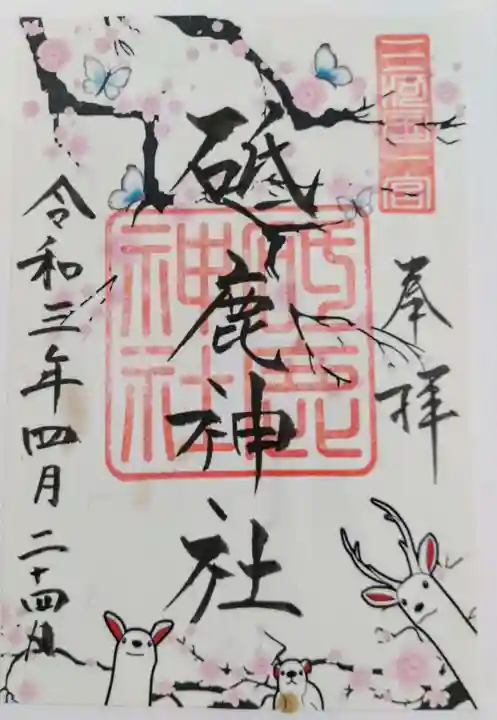 三河國一宮
奉拝
砥鹿神社
砥鹿神社
令和三年四月二十四日